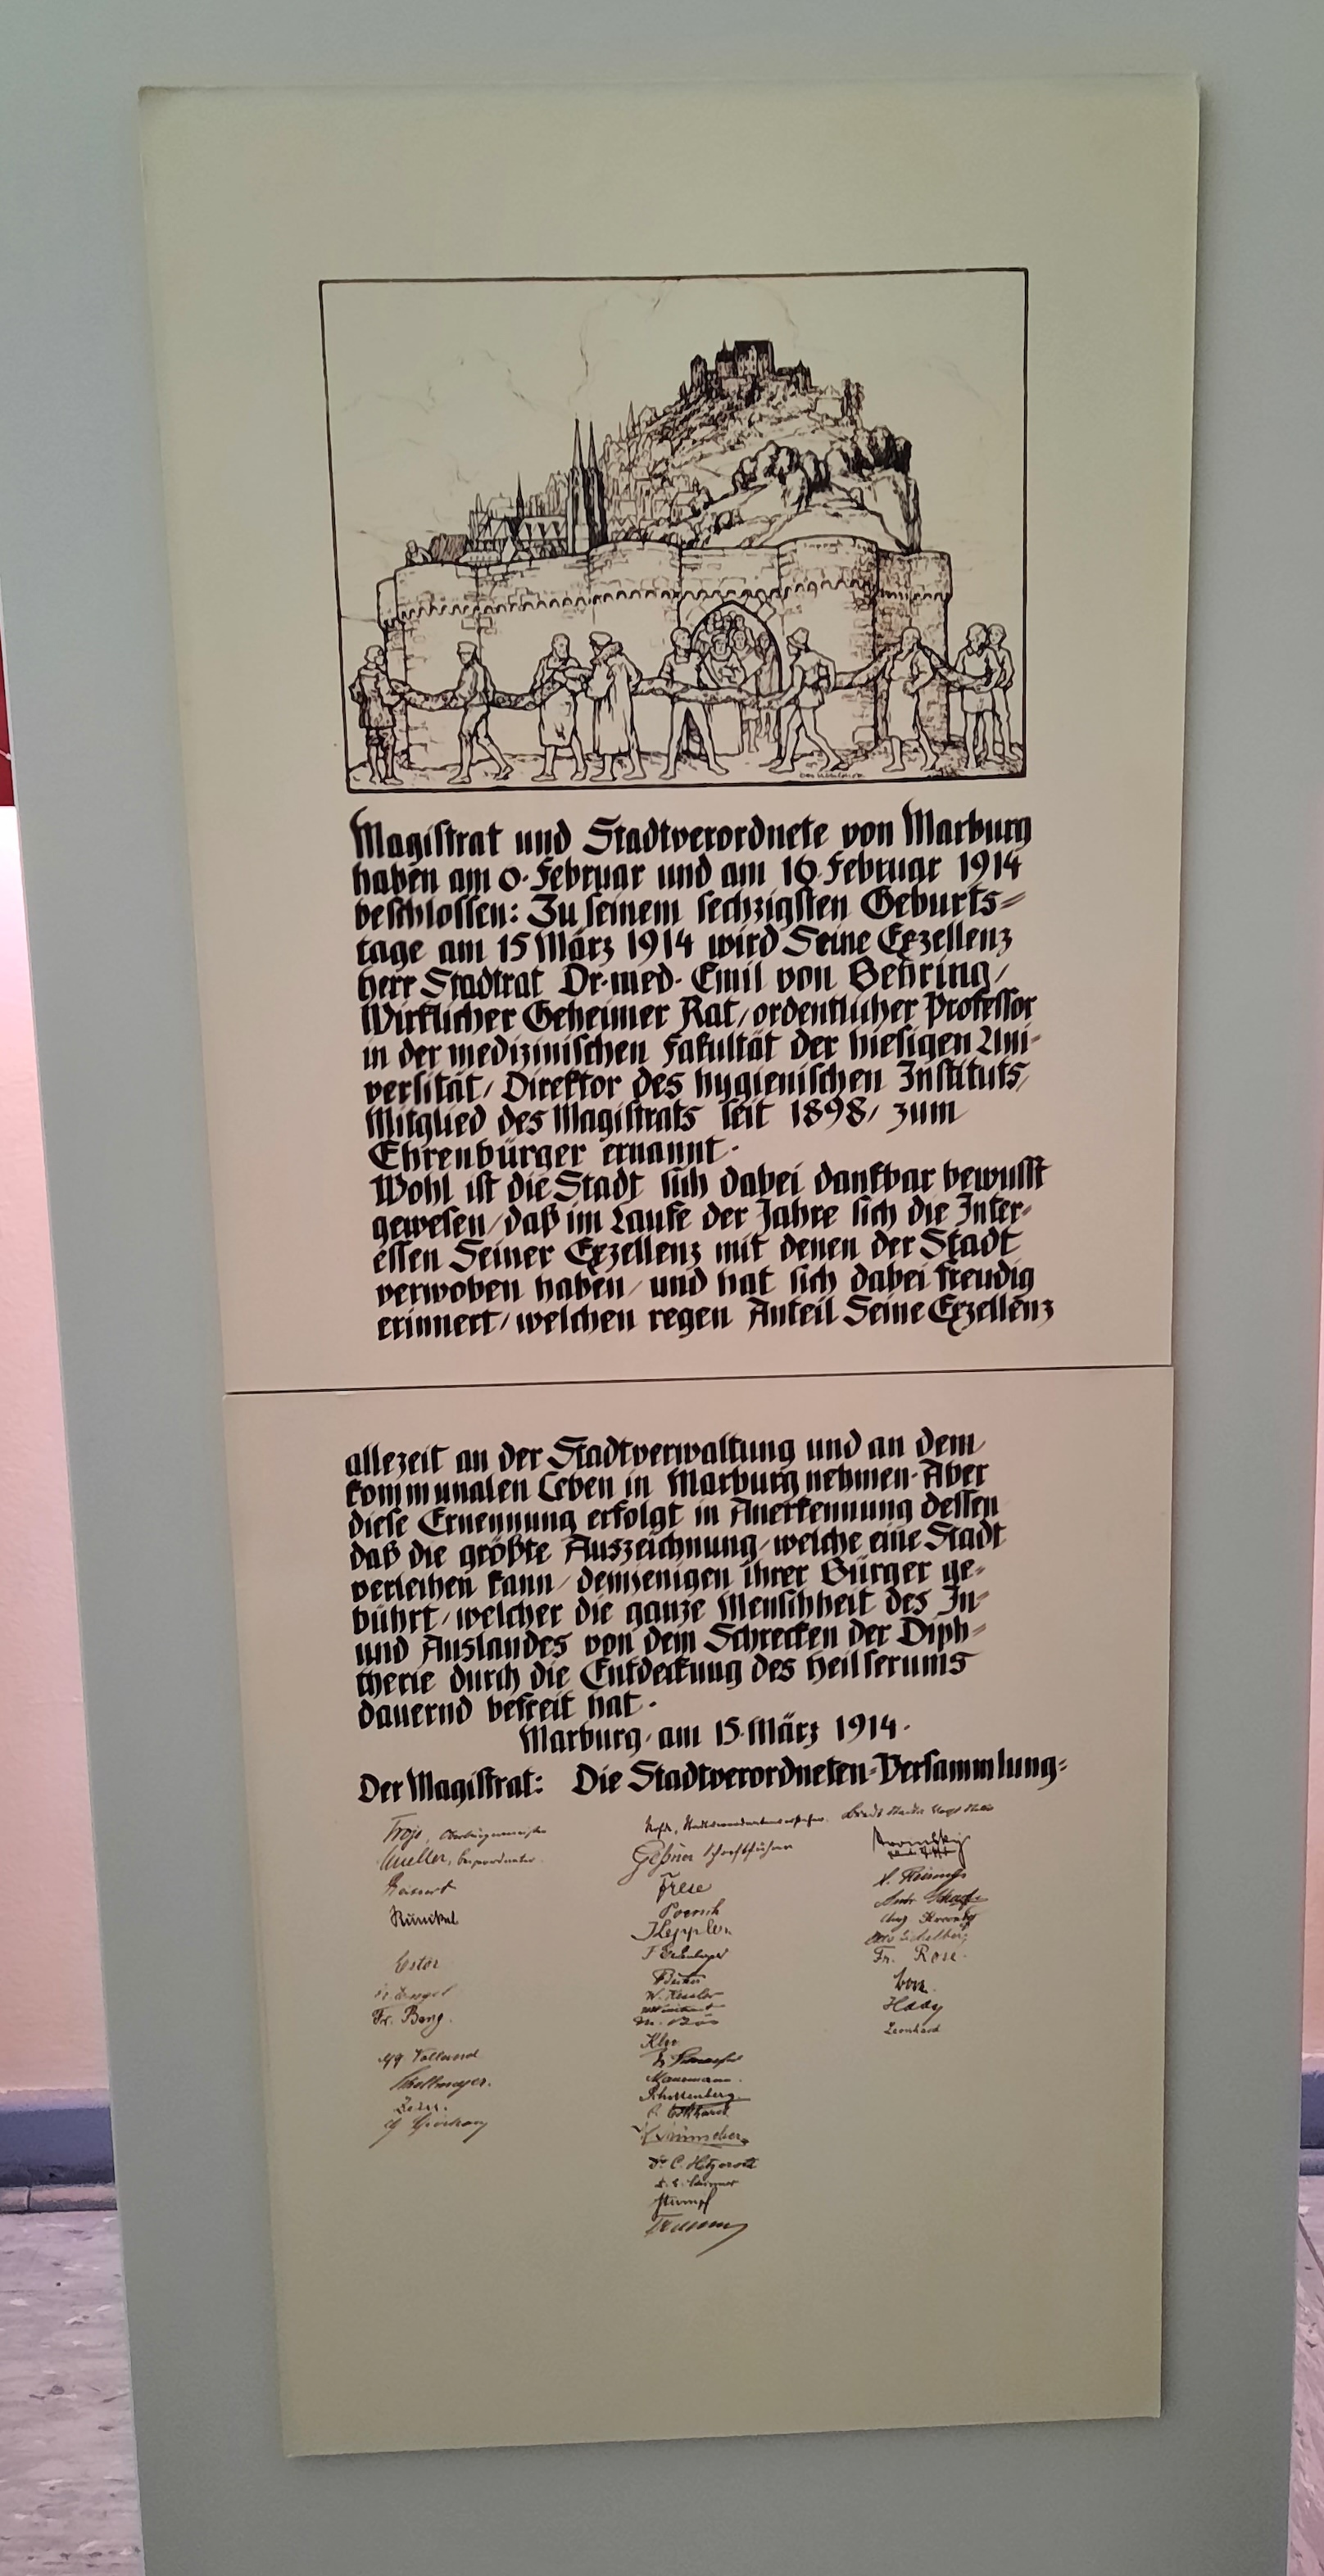 Magistrat und Stadtverordnete von Marburg
haben am 6. Februar und am 16. Februar 1914
beschlossen: Zu seinem sechzigsten Geburts=
tage am 15 März 1914 wird Seine Exzellenz
Herr Stadtrat Dr. med. Emil von Behring/
Wirklicher Geheimer Rat/ordentlicher Professor
in der medizinischen Fakultät der hiesigen Uni-
versität/ Direktor des hygienischen Instituts/
Mitglied des Magistrats seit 1898/ zum
Ehrenbürger ernannt.
Wohl ist die Stadt sich dabei dankbar bewusst
gewesen/daß im Laufe der Jahre sich die Inter-
essen Seiner Exzellenz mit denen der Stadt
verwoben haben/ und hat sich dabei freudig
erinnert/welchen regen Anteil Seine Exzellenz
allezeit an der Stadtverwaltung und an dem
kommunalen Leben in Marburg nehmen. Aber
diese Ernennung erfolgt in Anerkennung dessen
daß die größte Auszeichnung/welche eine Stadt
verleihen kann/ demjenigen ihrer Bürger ge-
bührt/welcher die ganze Menschheit des In-
und Auslandes von dem Schrecken der Diph=
therie durch die Entdeckung des Heilserums
dauernd befreit hat.
Marburg, am 15. März 1914.
Der Magistrat: Die Stadtverordneten=Versammlung:
Troje, Oberbürgermeister
Mueller, Beigeordneter
Estor
Fr. Berg.
Geßner Schriftführer
Frese
Keppler
W. Kessler
Klee
Dr. C. Hitzeroth
Stumpf
Fr. Rose
Haay
Leonhard